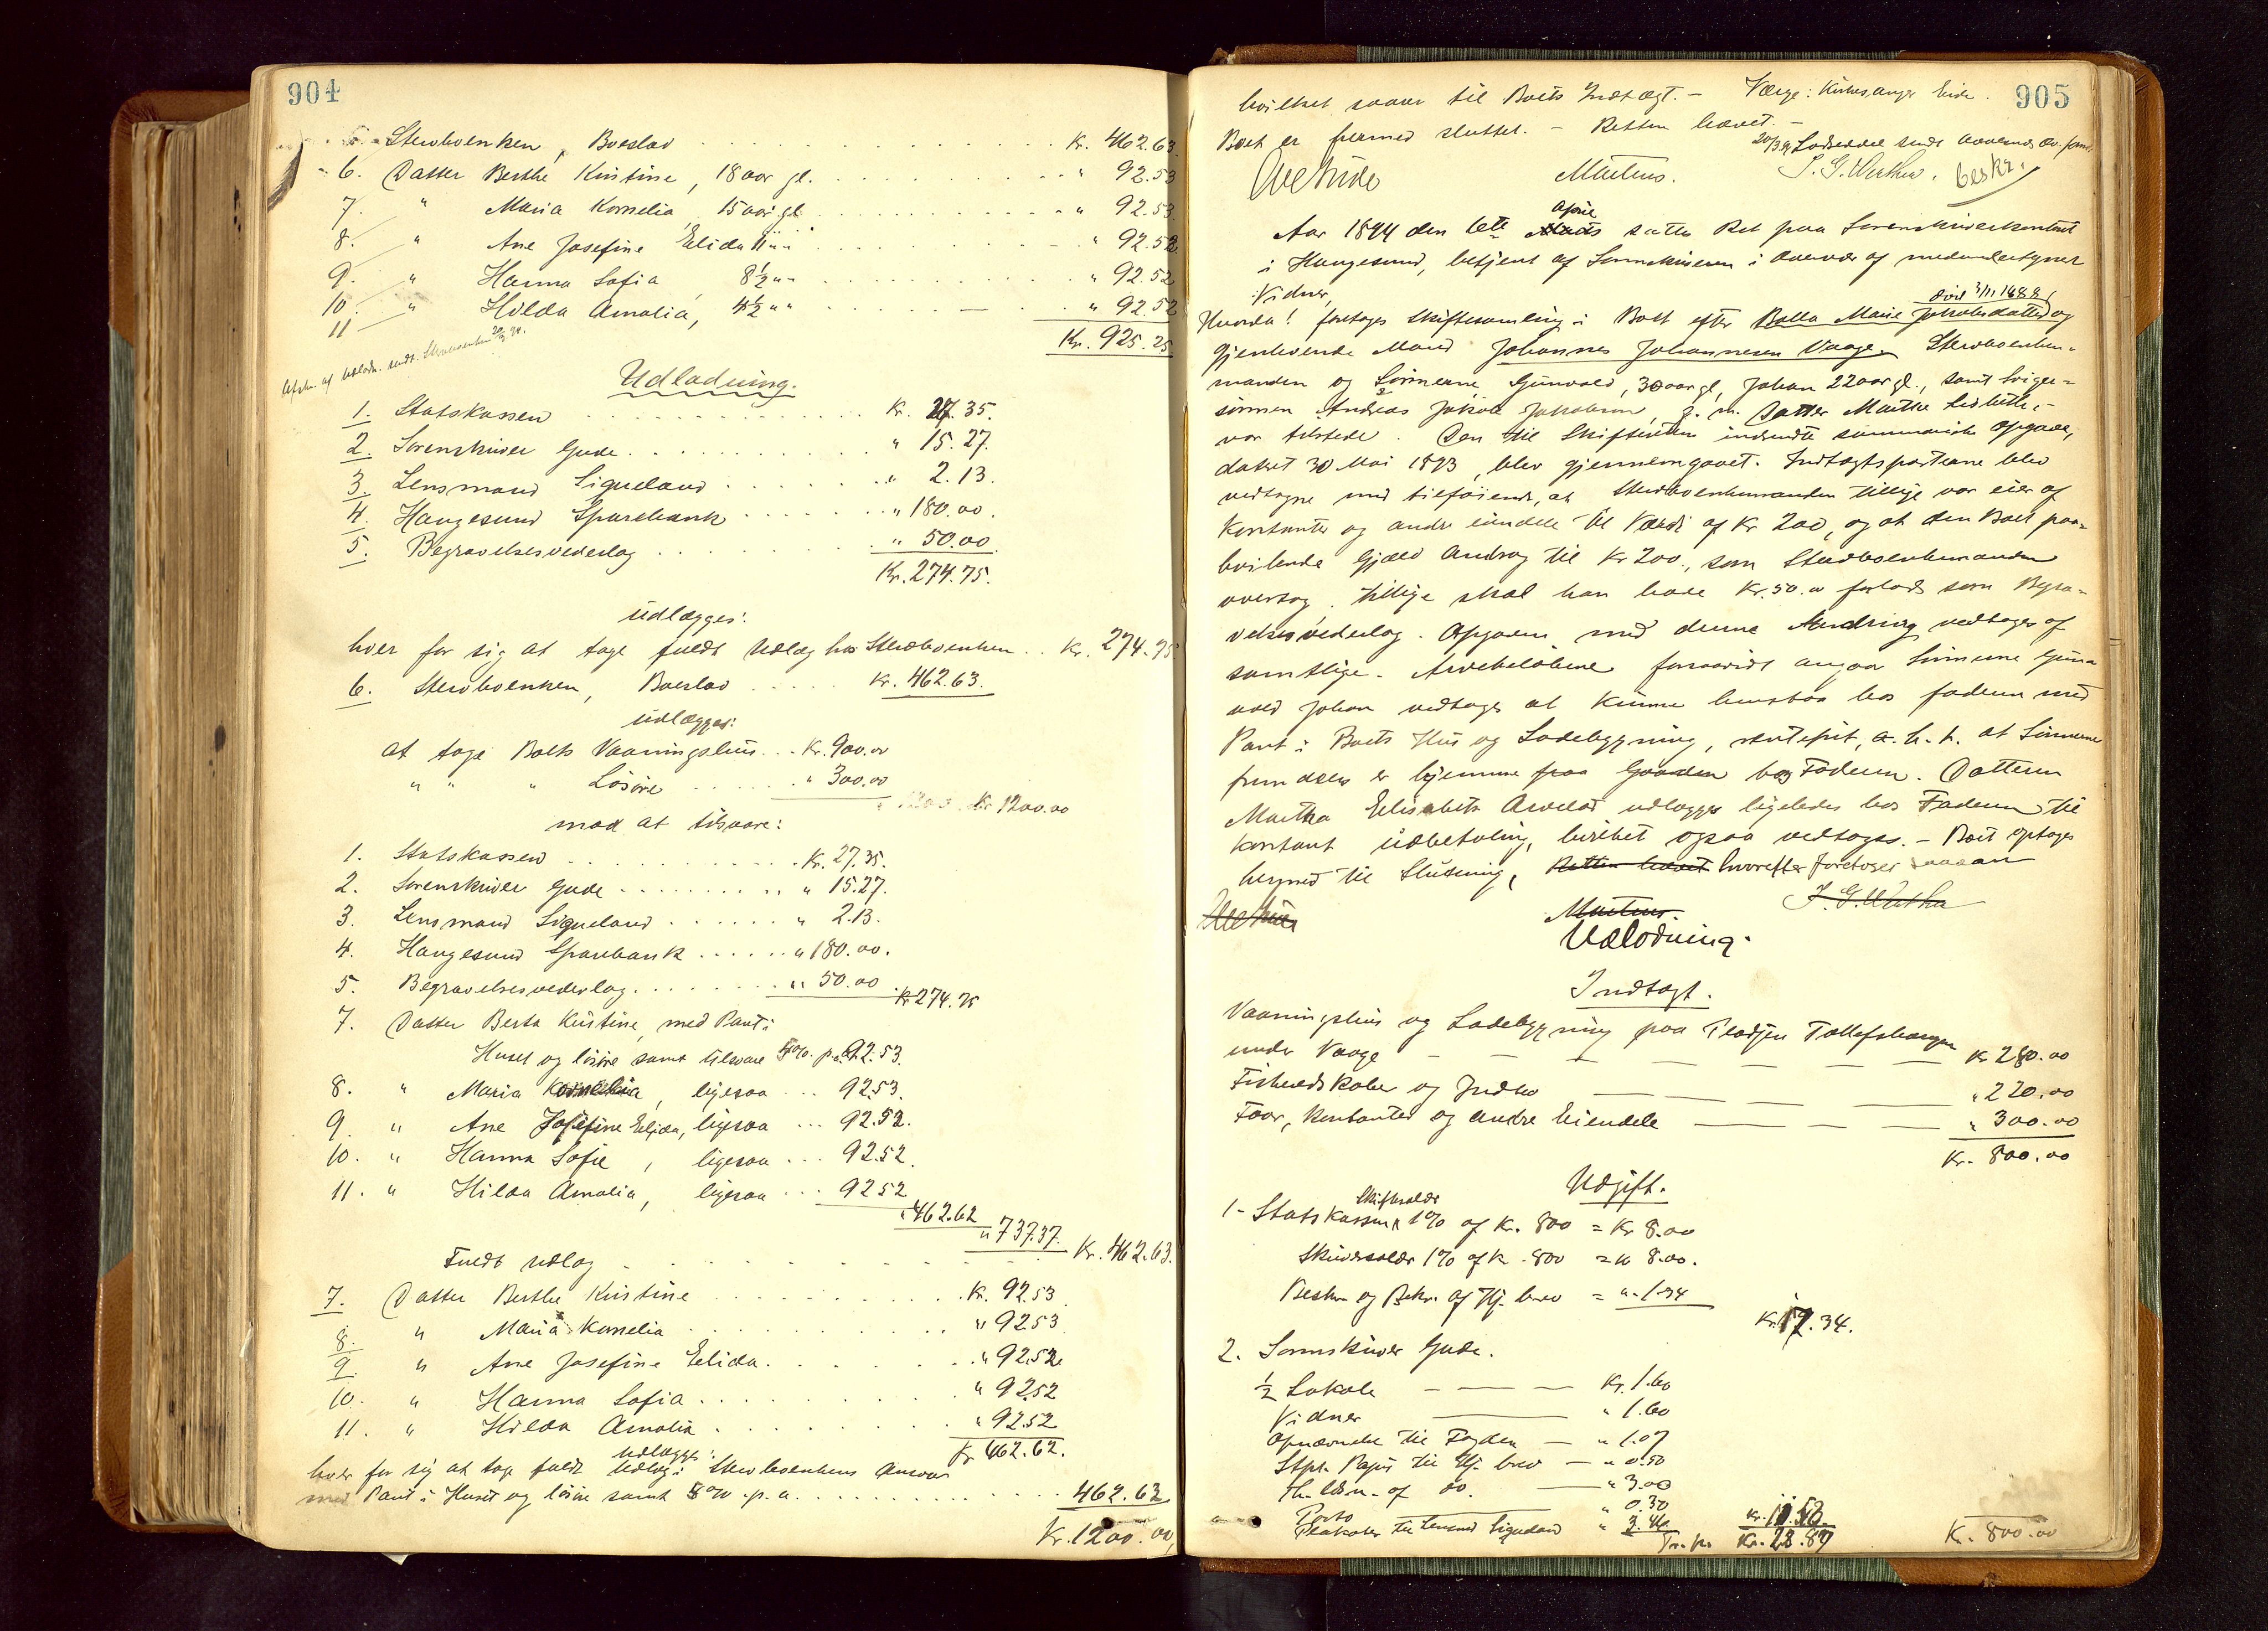 904
5. Sterboenken, Boeslod Kr. 462.63
6. Datter Berthe Kristine, 18 aar gl. " 92.53
7. " Maria Kornelia, 15 aar gl. " 92.53
8. " Ane Josefine Elida 11 " " " 92.52
9. " Hanna Sofia, 8½ " " " 92.52
10. " Hilda Amalia, 4½ " " " 92.52
11
Kr. 925.25
Udlodning.
1. Statskassen Kr. 27.35.
2. Sorenskriver Gude " 15.27.
3. Lensmand Sigueland " 2.13.
4. Haugesund Sparebank " 180.00.
5. Begravelsesvederlag " 50.00
Kr. 274.75.
udlægges:
hver for sig at tage fuldt Udlæg hos Sterboenken Kr. 274.75
6. Sterboenken, Boeslod Kr. 462.63.
udlægges:
at tage Boets Vaaningshus Kr. 900.00
" " " Løsøre " 300.00
Kr 1200.00
mod at tilsvare:
1. Statskassen Kr. 27.35.
2. Sorenskriver Gude " 15.27.
3. Lensmand Sigueland " 2.13.
4. Haugesund Sparebank " 180.00.
5. Begravelsesvederlag " 50.00 Kr 274.75
7. Datter Berta Kristine, med Pant i
Huset og løsøre samt tilsvare 5% p.a. 92.53.
8. " Maria Kornelia, ligesaa 92.53.
9. " Ane Josefine Elida, ligesaa 92.52.
10. " Hanna Sofie, ligesaa 92.52.
11. " Hilda Amalia, ligesaa 92.52
" 462.62
" 737.37. Kr. 462.63.
Fuldt udlæg
7. Datter Berthe Kristine Kr. 92.53
8. " Maria Kornelia " 92.53
9. " Ane Josefine Elida " 92.52
10. " Hanna Sofia " 92.52
11. " Hilda Amalia " 92.52
udlægges: Kr 462.62.
hver for sig at tage fuldt Udlæg i Sterboenkens Ansvar
med Pant i Huset og løsøre samt 5% p.a. 462.62
Kr. 1200.00,
905
hvilket svarer til Boets Indtægt. – Værge: Kirkesanger Eide.
Boet er hermed sluttet. – Retten hævet. –
Martens.
Beskr.
April
Aar 1894 den 6te Marts sattes Ret paa Sorenskriverkontoret
i Haugesund, betjent af Sorenskriveren i Overvær af medundertegnede
Vidner,
død 3/11 1888
Hvorda! foretoges Skiftesamling i Boet efter Malla Marie Jakobsdatter og
gjenlevende Mand Johannes Johannesen Vaage. Sterboenke-
manden og Sønnerne Gunvald, 30 aar gl, Johan 22 aar gl., samt Sviger-
sønnen Andreas Jakob Jakobsen, g. m. Datter Martha Elisbeth,-
var tilstede. Den til Skifteretten indsendte summariske Opgave,
dateret 30 Mai 1893, blev gjennemgaaet. Indtægtsposterne blev
vedtagne med tilføiende, at Sterboenkemanden tillige var eier af
Kontanter og andre eiendele til Værdi af Kr 200, og at den Boet paa-
hvilende Gjæld androg til Kr 200., som Sterboenkemanden
overtog. Tillige skal han have Kr. 50.00 forlods som Begra-
velsesvederlag. Opgaven med denne Ændring vedtages af
samtlige. Arvebeløbene forsaavidt angaar Sønnerne Gun-
vald Johan vedtages at kunne henstaa hos faderen med
Pant i Boets Hus og Ladebygning, rentefrit, a. h. t. at Sønnerne
fremdeles er hjemme paa Gaarden hos Faderen. Datteren
Martha Elisabeth Arvelod udlægges ligeledes hos Faderen til
kontant udbetaling, hvilket ogsaa vedtages. – Boet optages
hermed til Slutning, Retten hævet hvorefter foretoges saadan
Martens.
Udlodning.
Indtægt.
Vaaningshus og Ladebygning paa Pladsen Tollefshaugen
under Vaage Kr 280.00
Fiskeredskaber og Indbo " 220.00
Faar, Kontanter og andre Eiendele " 300.00
Kr. 800.00
Udgift.
Skiftesalær
1- Statskassen 1% af Kr. 800 = Kr 8.00
Skriversalær 1% af Kr. 800 = " 8.00.
Beskr. og Bekr. af Hj. brev = " 1.34
Kr. 17.34.
2. Sorenskriver Gude.
½ Lokale Kr. 1.60
Vidner " 1.60
Opnævnelse til Fogden " 1.07
Stpl. Papir til Hj. brev " 0.50
" 3.00
Porto " 0.30
Plakater til Lensmd Sigueland " 3.46 Kr. 11.53.
Tr. fr. Kr. 28.87 Kr. 800.00